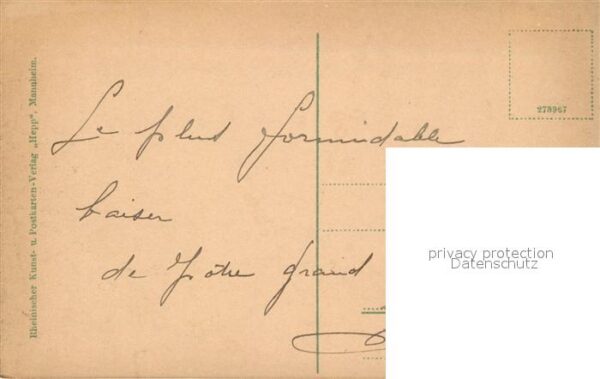 Rheinischer Kunst- u. Postkarten-Verlag „Hepp“, Mannheim.
278967
Le plus formidable
baiser
de Votre grand
privacy protection
Datenschutz